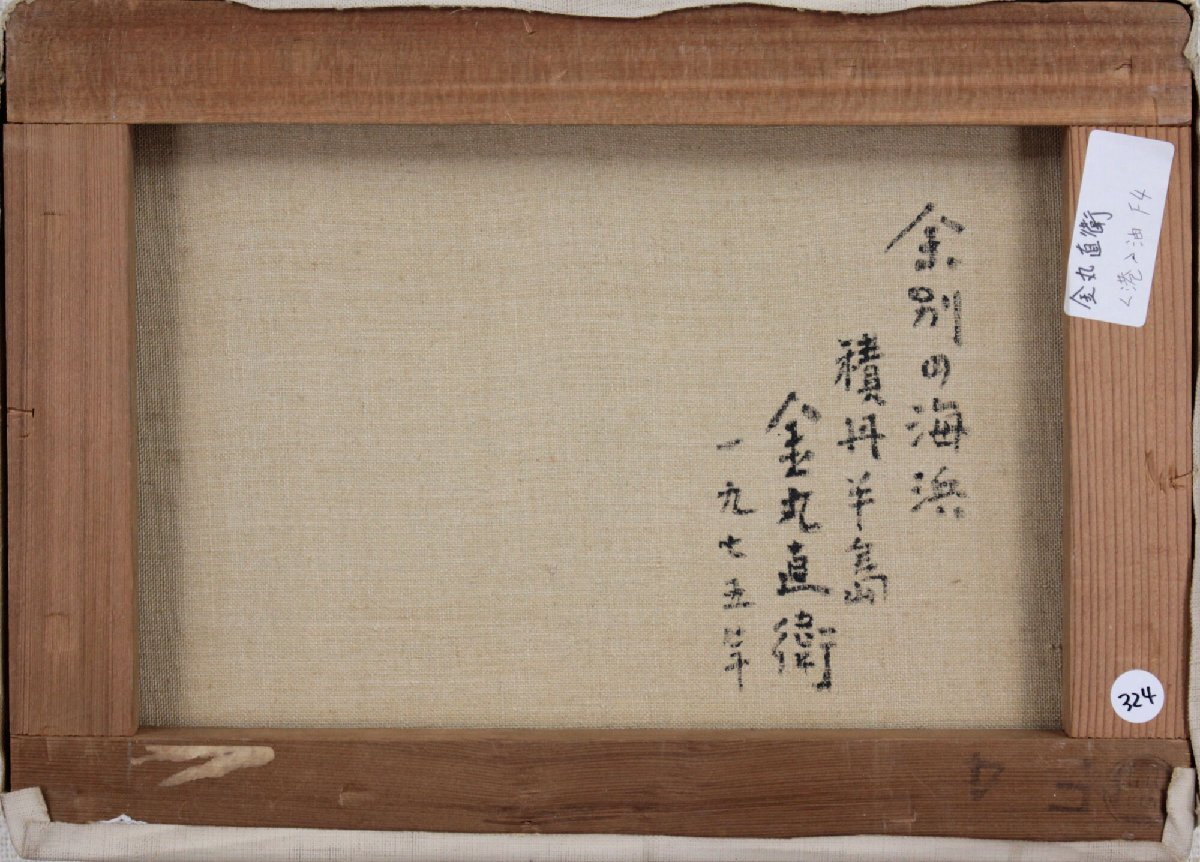 余別の海浜
積丹半島
金丸直衛
一九七五年
金丸直衛
<港>油 F4
324
F 4